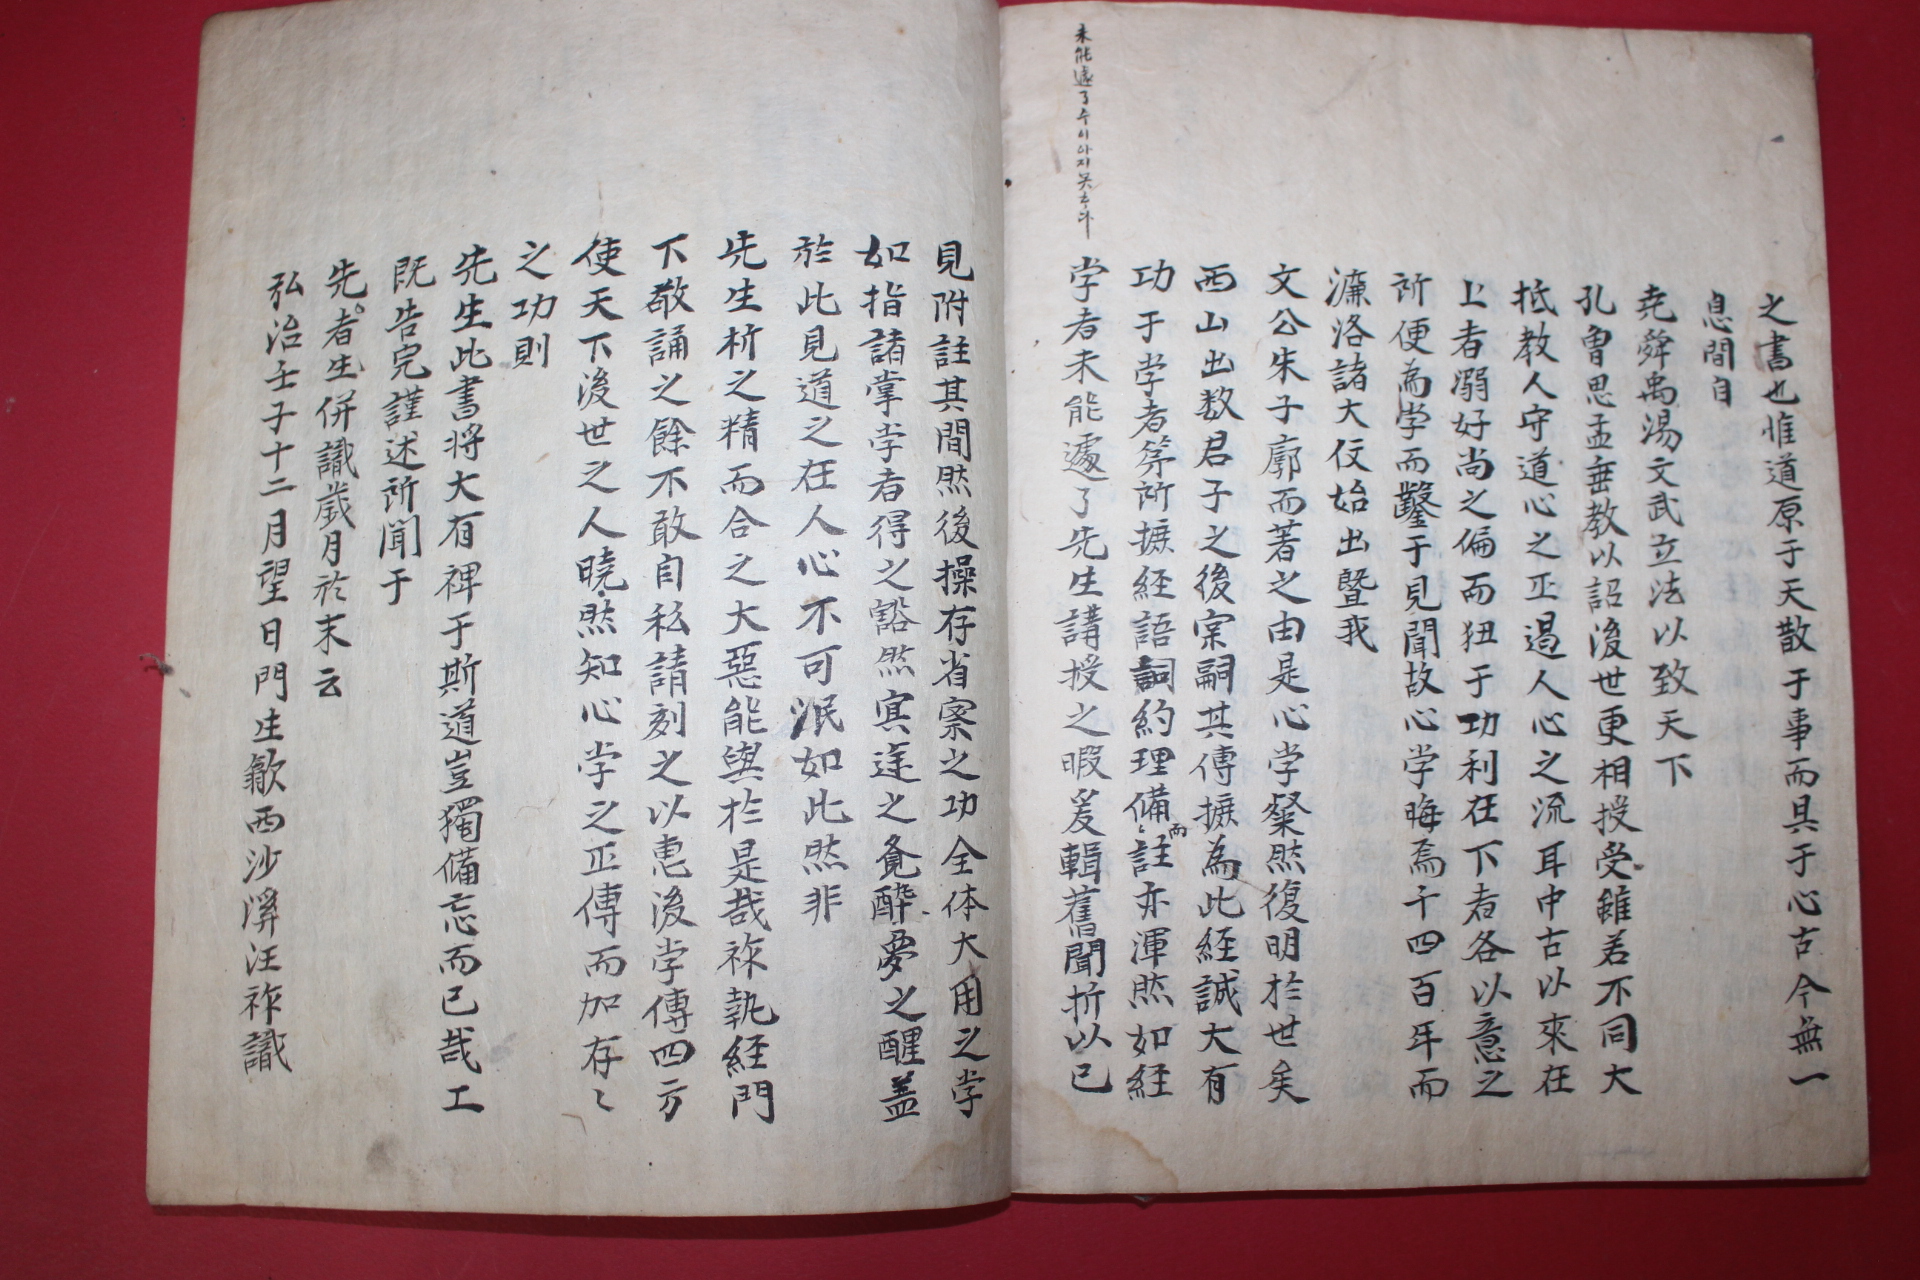 未能遽了수이아지못ᄒᆞ다
之書也惟道原于天散于事而具于心古今無一
息間自
堯舜禹湯文武立法以致天下
孔曾思孟垂教以詔後世更相授受雖若不同大
抵教人守道心之正遏人心之流耳中古以來在
上者溺好尚之偏而狃于功利在下者各以意之
所便為学而鑿于見聞故心学晦焉千四百年而
濂洛諸大伇始出曁我
文公朱子廓而著之由是心学粲然復明於世矣
西山出数君子之後宲嗣其傳摭為此経誠大有
功于学者苐所摭経語詞約理備而註亦渾然如経
学者未能遽了先生講授之暇爰輯舊聞折以已
見附註其間然後操存省察之功全体大用之学
如指諸掌学者得之豁然㝠迷之覺醉夢之醒盖
於此見道之在人心不可泯如此然非
先生析之精而合之大惡能與於是哉祚執経門
下敬誦之餘不敢自私請刻之以恵後学傳四方
使天下後世之人暁然知心学之正傳而加存〻
之功則
先生此書将大有裨于斯道豈獨備忘而已哉工
既告完謹述所聞于
先者生併識歲月於末云
弘治壬子十二月望日門生歙西沙溪汪祚識